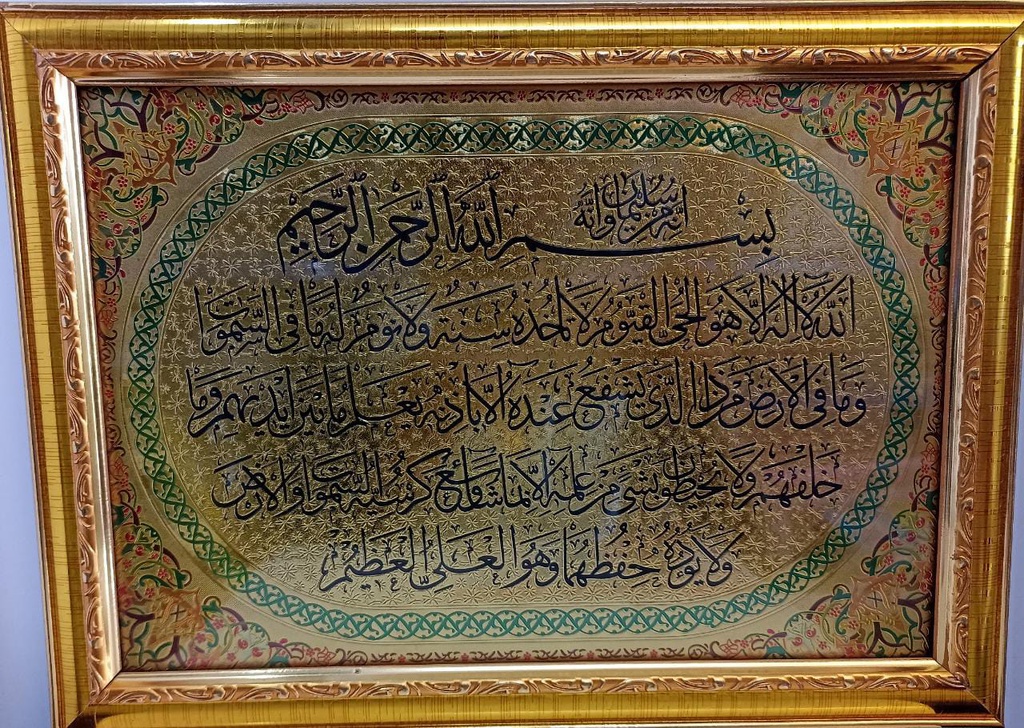 إنه من سليمان وإنه
بسم الله الرحمن الرحيم
الله لا اله الا هو الحي القيوم لا تاخذه سنة ولا نوم له ما في السموات
وما في الارض من ذا الذي يشفع عنده الا باذنه يعلم ما بين ايديهم وما
خلفهم ولا يحيطون بشئ من علمه الا بما شاء وسع كرسيه السموات والارض
ولا يؤده حفظهما وهو العلي العظيم